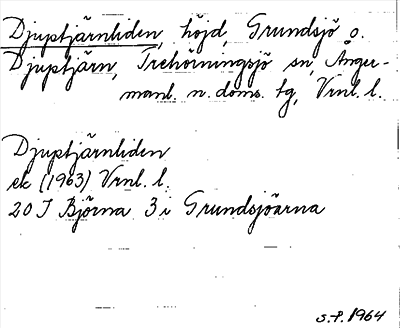 Djuptjärnliden, höjd, Grundsjö o.
Djuptjärn, Trehörningsjö sn, Ånger-
manl. n. doms. tg, Vrnl. l.
Djuptjärnliden
ek (1963) Vrnl. l.
20 J Björna 3 i Grundsjöarna
S.P. 1964